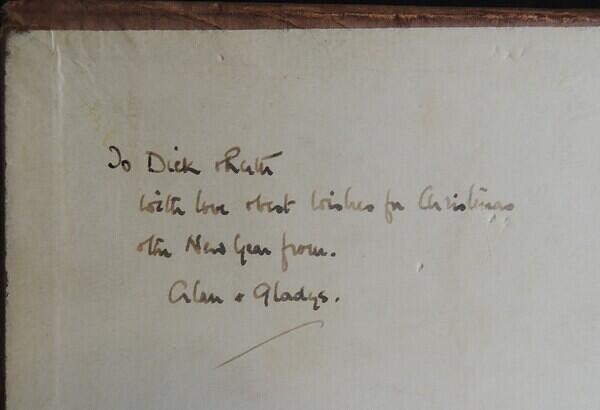 To Dick & Ruth
with love & best wishes for Christmas
& the New Year from.
Alan & Gladys.